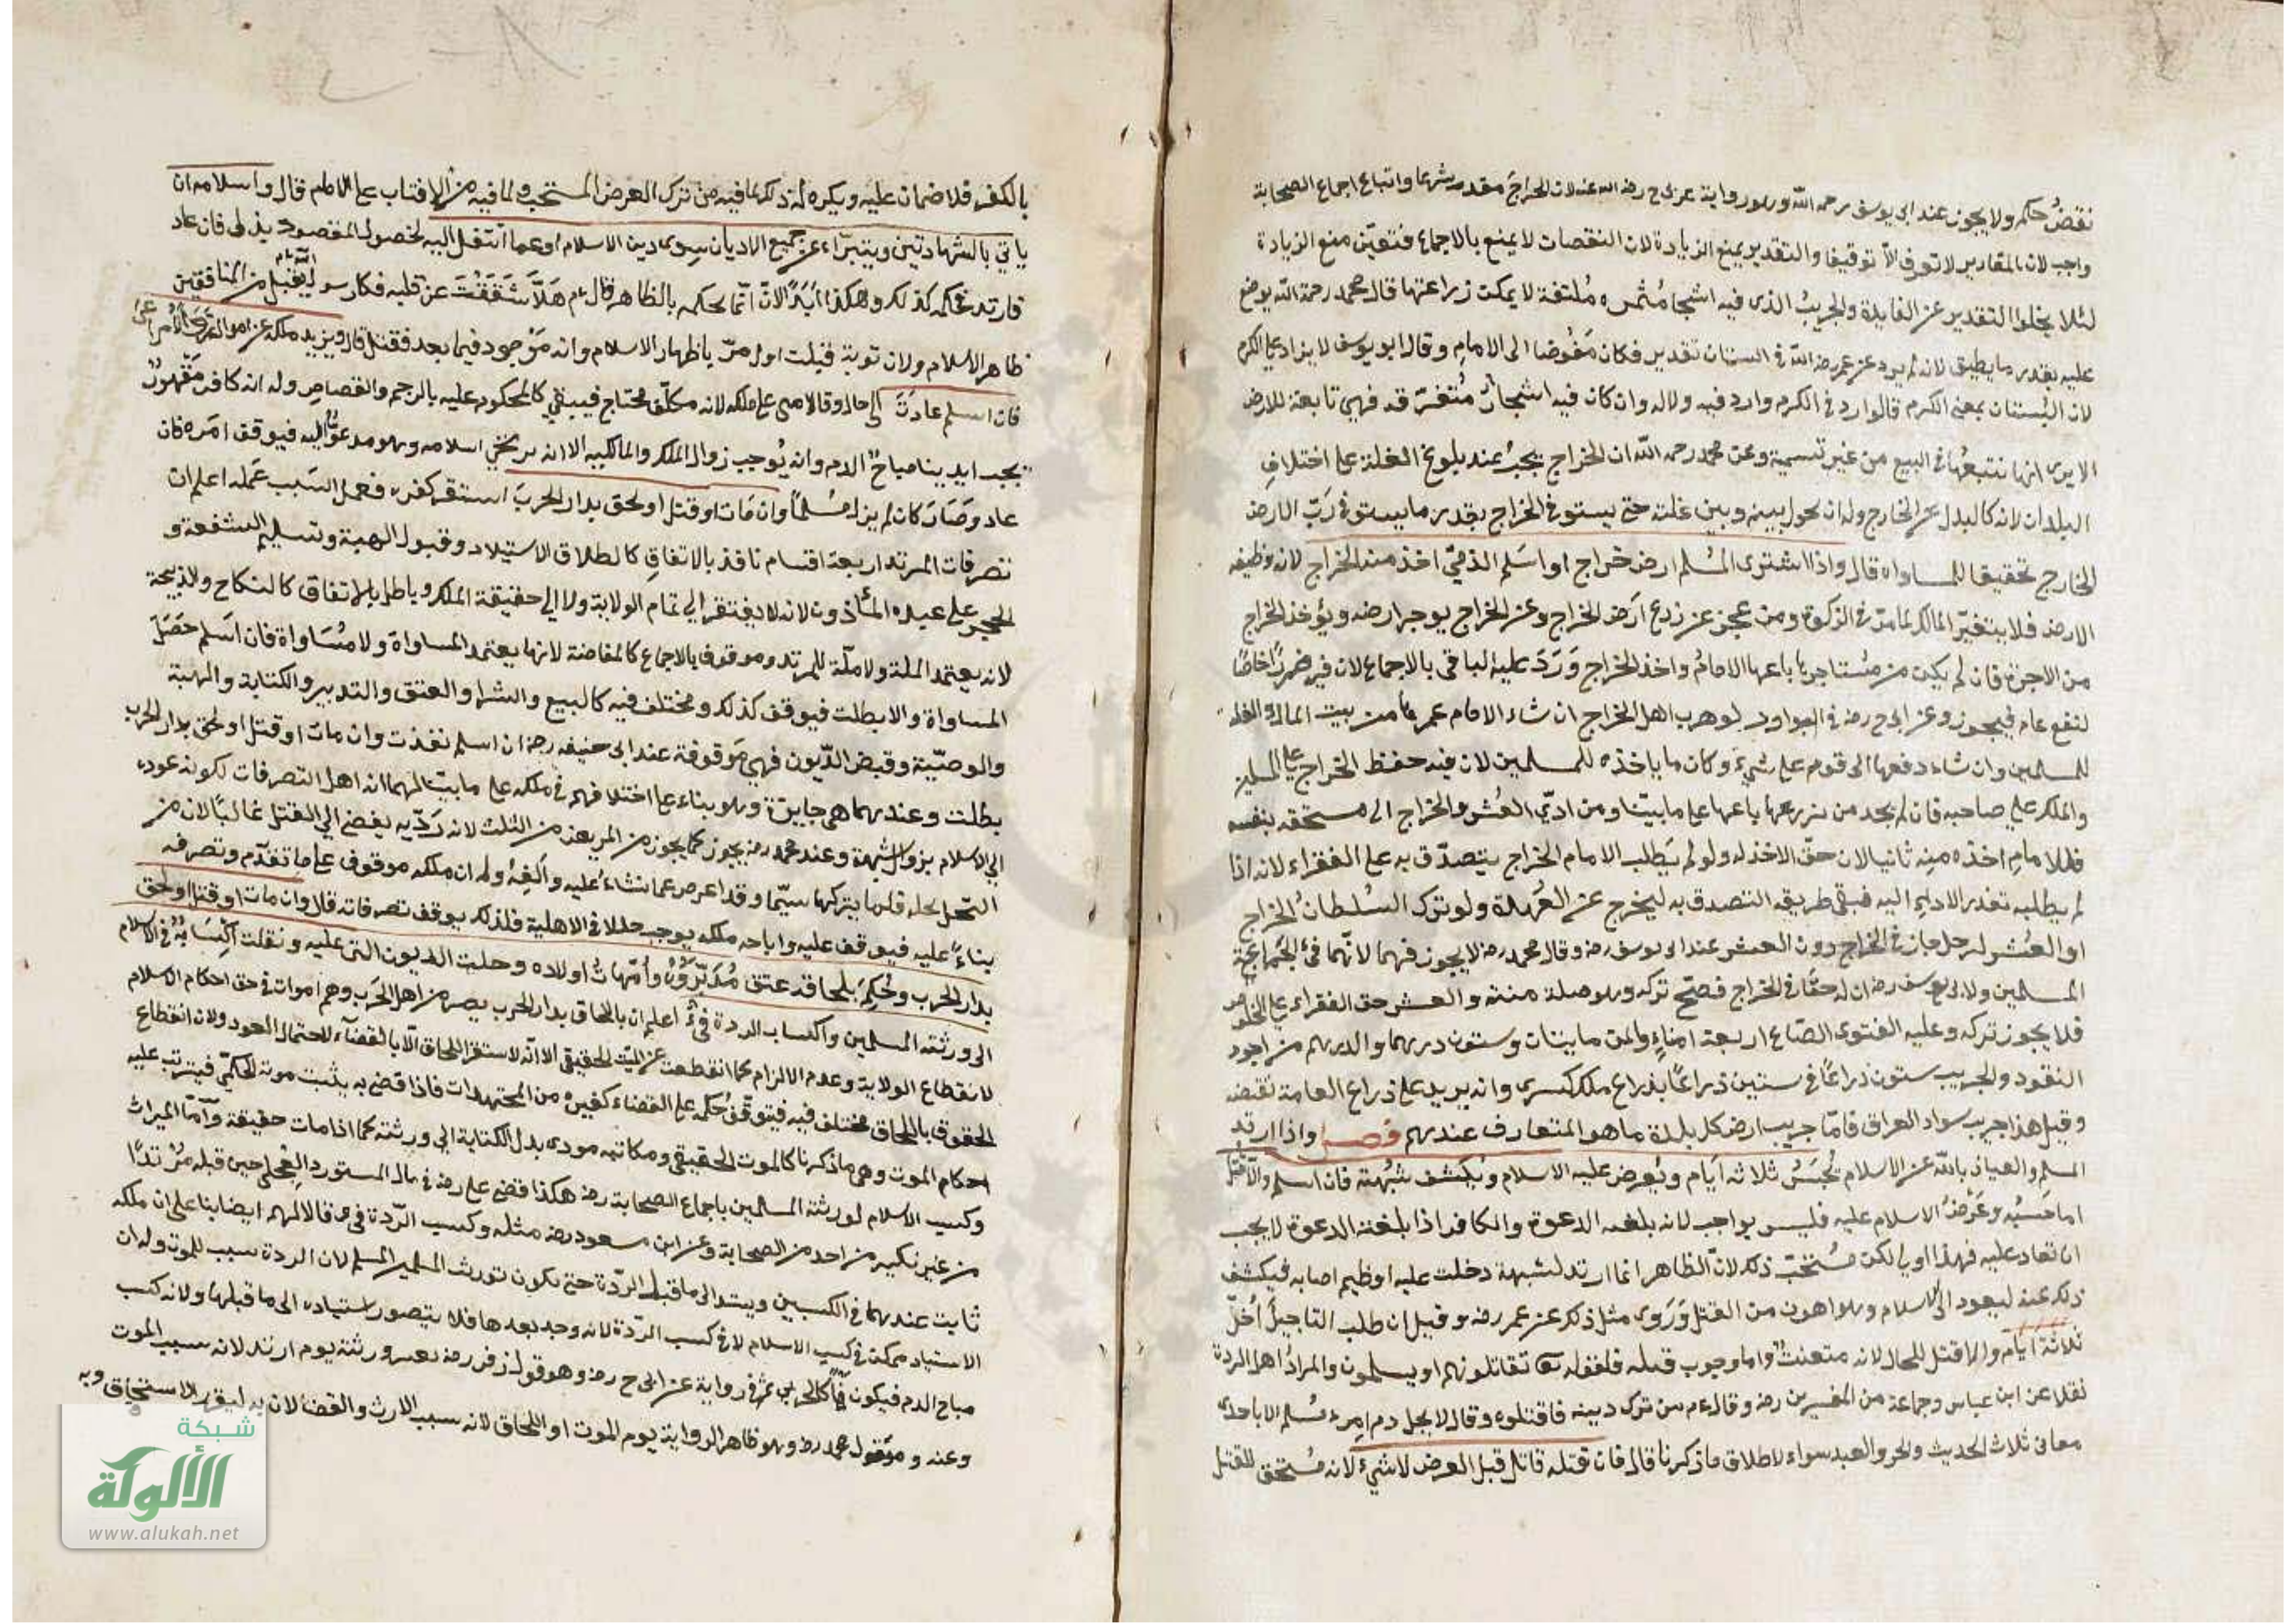 نقض حكم ولا يجوز عند ابى يوسف رحمه الله وهو رواية عن ابى ح رضى الله عنه لان الخراج مقدر شرعا واتباع اجماع الصحابة
واجب لان المقادير لا تعرف الا توقيفا والتقدير يمنع الزيادة لان النقصان لا يمنع بالاجماع فتعين منع الزيادة
لئلا يخلوا التقدير عن الفايدة والجريب الذى فيه اشجار مثمره ملتفة لا يمكن زراعتها قال محمد رحمة الله يوضع
عليه بقدر ما يطيق لانه لم يرد عن عمر رضى الله فى البستان تقدير فكان مفوضا الى الامام وقال ابو يوسف لا يزاد على الكرم
لان البستان بمعنى الكرم فالوارد فى الكرم وارد فيه ولاله وان كان فيه اشجار متفرقة فهى تابعة للارض
الا يرى انها تتبعها فى البيع من غير تسمية وعن محمد رحمه الله ان الخراج يجب عند بلوغ الغلة على اختلاف
البلدان لانه كالبدل عن الخارج وله ان يحول بينه وبين غلته حتى يستوفى الخراج بقدر ما يستوفى رب الارض
الخارج تحقيقا للمساواة قال واذا اشترى المسلم ارض خراج او اسلم الذمى اخذ منه الخراج لانه وظيفة
الارض فلا يتغير المالك لما مر فى الزكوة ومن عجز عن زرع ارض الخراج وعن الخراج يوجر ارضه ويؤخذ الخراج
من الاجرة فان لم يكن من يستاجرها باعها الامام واخذ الخراج ورد عليه الباقى بالاجماع لان فيه ضررا خاصا
لنفع عام فيجوز وعن ابى ح رضه فى لو هرب اهل الخراج ان شاء الامام عمرها من بيت المال والغلة
للمسلمين وان شاء دفعها الى قوم على شئ وكان ما ياخذه للمسلمين لان فيه حفظ الخراج على المسلمين
والملك على صاحبه فان لم يجد من يزرعها باعها على ما بيّنا ومن ادّى العشر والخراج الى مستحقه بنفسه
فللامام اخذه منه ثانيا لان حق الاخذ له ولو لم يطلب الامام الخراج يتصدق به على الفقراء لانه اذا
لم يطلبه تعذر الاداء اليه فبقى طريقه التصدق به ليخرج عن العهدة ولو ترك السلطان الخراج
او العشر لرجل جاز فى الخراج دون العشر عند ابى يوسف رضه وقال محمد رضه لا يجوز فيهما لانهما فئ لجماعة
المسلمين ولابى يوسف رضه ان له حقا فى الخراج فصح تركه وهو صلة منه والعشر حق الفقراء على الخلوص
فلا يجوز تركه وعليه الفتوى الصاع اربعة امناء والمن مايتان وستون درهما والدرهم من اجود
النقود والجريب ستون ذراعا فى ستين ذراعا بذراع ملك كسرى وانه يزيد على ذراع العامة بقبضة
وقيل هذا جريب سواد العراق فاما جريب ارض كل بلدة ما هو المتعارف عندهم فصل واذا ارتد
المسلم والعياذ بالله عن الاسلام يحبس ثلاثة ايام ويعرض عليه الاسلام وتكشف شبهته فان اسلم والا قتل
اما حبسه وعرض الاسلام عليه فليس بواجب لانه بلغته الدعوة والكافر اذا بلغته الدعوة لا يجب
ان تعاد عليه فهذا اولى لكن مستحب ذلك لان الظاهر انما ارتد لشبهة دخلت عليه او ظيم اصابه فيكشف
ذلك عنه ليعود الى الاسلام وهو اهون من القتل وروى مثل ذلك عن عمر رضه وقيل ان طلب التاجيل اجل
ثلاثة ايام والا قتل للحال لانه متعنت واما وجوب قتله فلقوله تع تقاتلونهم او يسلمون والمراد اهل الردة
نقلا عن ابن عباس وجماعة من المفسرين رضه وقال عم من ترك دينه فاقتلوه وقال لا يحل دم امرء مسلم الا باحدى
معانى ثلاث الحديث والحر والعبد سواء لاطلاق ما ذكرنا قال فان قتله قاتل قبل العرض لا شئ لانه مستحق للقتل
بالكفر فلا ضمان عليه ويكره له ذلك لما فيه من ترك العرض المستحب ولما فيه من الافتيات على الامام قال واسلامه ان
ياتى بالشهادتين ويتبراء عن جميع الاديان سوى دين الاسلام او عما انتقل اليه لحصول المقصود بذلك فان عاد
فارتد فحكمه كذلك وهكذا ابدا لانا انما نحكم بالظاهر قال عم هلا شققت عن قلبه فكان رسول الله عم يقبل من المنافقين
ظاهر الاسلام ولان توبة قبلت اول مرّ باظهار الاسلام وانه موجود فيما بعد فقتل قال ويزيد ملكه عن امواله
فان اسلم عادت الى حاله وقالا هى على ملكه لانه مكلف محتاج فيبقى كالمحكوم عليه بالرجم والقصاص وله انه كافر مقهور
تحت ايدينا مباح الدم وانه يوجب زوال الملك والمالكيه الا انه يرتجى اسلامه وهو مدعو اليه فيوقف امره فان
عاد وصار كان لم يزل مسلما وان مات او قتل او لحق بدار الحرب استقر كفره فعمل السبب عمله اعلم ان
تصرفات المرتد اربعة اقسام نافذ بالاتفاق كالطلاق الاستيلاد وقبول الهبة وتسليم الشفعة و
الحجر على عبده الماذون لانه لا يفتقر الى تمام الولاية ولا الى حقيقة الملك وباطل بالاتفاق كالنكاح والذبيحة
لانه يعتمد الملة ولا ملة للمرتد وموقوف بالاجماع كالمفاوضة لانها يعتمد المساواة ولا مساواة فان اسلم حصل
المساواة والا بطلت فيوقف كذلك ومختلف فيه كالبيع والشراء والعتق والتدبير والكتابة والهبة
والوصية وقبض الديون فهى موقوفة عند ابى حنيفه رضه ان اسلم نفذت وان مات او قتل او لحق بدار الحرب
بطلت وعندهما هى جايزة وهو بناء على اختلافهم فى ملكه على ما بيّنا لهما انه اهل التصرفات لكونه عوده
الى الاسلام بزوال الشبهة وعند محمد رضه يجوز كما يجوز من المريض من الثلث لانه ردّيه يفضى الى القتل غالبا لان من
انتحل نحلة قلما يتركها سيما وقد اعرض عما نشاء عليه والفه وله ان ملكه موقوف على ما تقدم وتصرفه
بناء عليه فيوقف عليه واباحه ملكه يوجب خللا فى الاهلية فلذلك يوقف تصرفاته قال وان مات او قتل او لحق
بدار الحرب وحكم بلحاقه عتق مدبروه وامهات اولاده وحلت الديون التى عليه ونقلت اكسابه فى الاسلام
الى ورثته المسلمين واكساب الردة فئ اعلم ان باللحاق بدار الحرب يصير من اهل الحرب وهم اموات فى حق احكام الاسلام
لانقطاع الولاية وعدم الالزام كما انقطعت عن الميت الحقيقى الا انه لا يستقر اللحاق الا بالقضاء لاحتمال العود ولان انقطاع
الحقوق باللحاق مختلف فيه فتوقف حكمه على القضاء كغيره من المجتهدات فاذا قضى به يثبت موته الحكمى فيترتب عليه
احكام الموت وهى ما ذكرنا كالموت الحقيقى ومكاتبه مودى بدل الكتابة الى ورثته كما اذا مات حقيقة واما الميراث
وكسب الاسلام لورثته المسلمين باجماع الصحابة رضه هكذا قضى على رضه فى مال المستورد العجلى حين قتله مرتدا
من غير نكير من احد من الصحابة وعن ابن مسعود رضه مثله وكسب الردة فئ وقالا لهم ايضا بناء على ان ملكه
ثابت عندهما فى الكسبين ويستند الى ما قبل الردة حتى يكون توريث المسلم من المسلم لان الردة سبب للموت وله ان
الاستناد ممكن فى كسب الاسلام لا فى كسب الردة لانه وجد بعدها فلا يتصور استناده الى ما قبلها ولانه كسب
مباح الدم فيكون فيئا كالحربى ثم فى رواية عن ابى ح رضه وهو قول زفر رضه يعتبر ورثته يوم ارتد لانه سبب الموت
وعنه وهو قول محمد رضه وهو ظاهر الرواية يوم الموت او اللحاق لانه سبب الارث والقضاء لان به ليقرر الاستحقاق وبه
شبكة
الألوكة
www.alukah.net